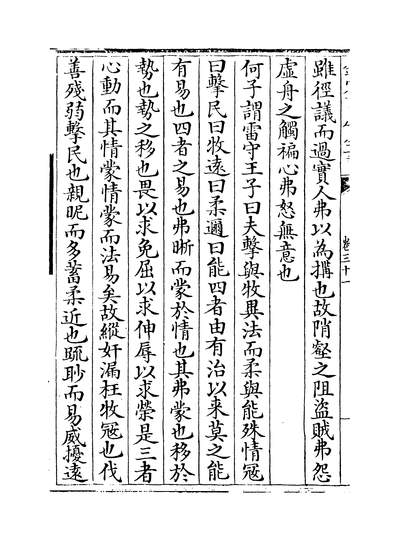 雖徑議而過實人弗以為搆也故陗壑之阻盜賊弗怨
虛舟之觸褊心弗怒無意也
何子謂雷守王子曰夫擊與牧異法而柔與能殊情冦
曰擊民曰牧遠曰柔邇曰能四者由有治以来莫之能
有易也四者之易也弗晰而蒙於情也其弗蒙也移於
勢也勢之移也畏以求免屈以求伸辱以求榮是三者
心動而其情蒙情蒙而法易矣故縱奸漏枉牧冦也伐
善殘弱擊民也親昵而多蓄柔近也疏眇而易威擾遠